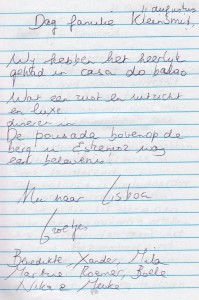 11 augustus
Dag familie Kleinsmit,
Wij hebben het heerlijk
gehad in casa do balao
Wat een rust en uitzicht
en luxe
dineren in
De pousada bovenop de
berg in Estremoz nog
een belevenis!
Nu naar Lisboa
Groetjes
Benedikte Xander, Mila
Martine Roemer, Boele
Nika e Meike